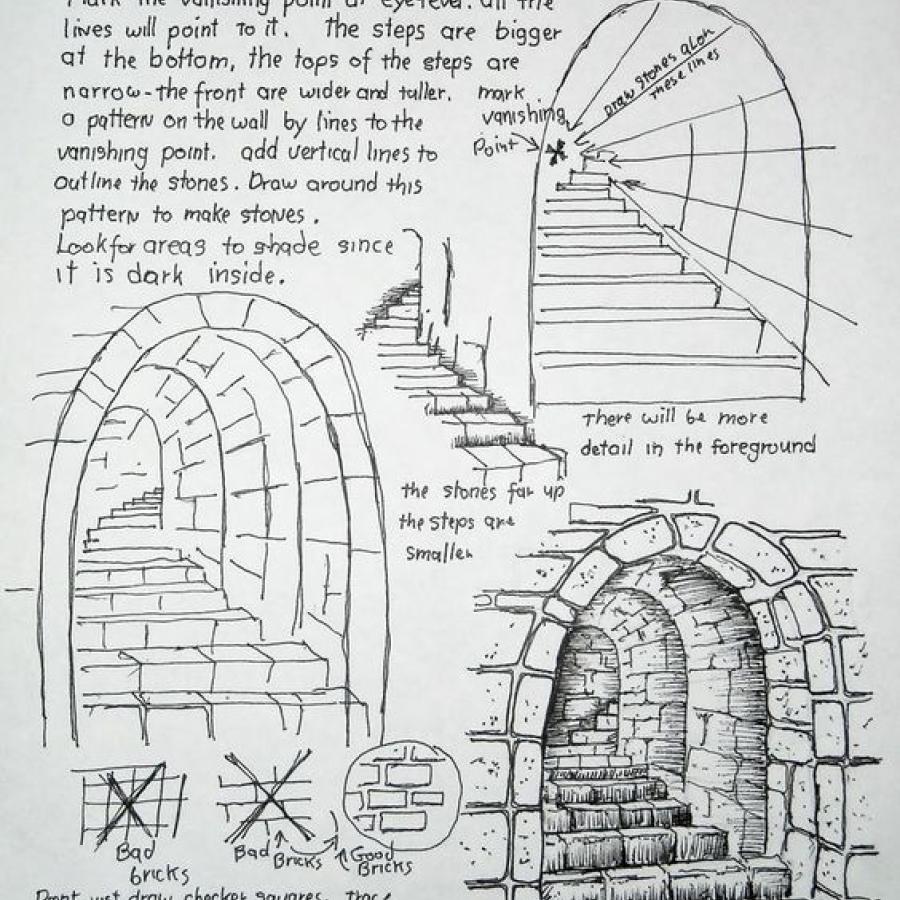 Mark the vanishing point at eye level. all the
lines will point to it. The steps are bigger
at the bottom, the tops of the steps are
narrow-the front are wider and taller.
a pattern on the wall by lines to the
vanishing point. add vertical lines to
outline the stones. Draw around this
pattern to make stones.
Look for areas to shade since
it is dark inside.
mark
vanishing
Point
Draw stones alon
these lines
There will be more
detail in the foreground
the stones far up
the steps are
smaller
Bad
bricks
Bad
Bricks
Good
Bricks
Dont just draw checker squares.